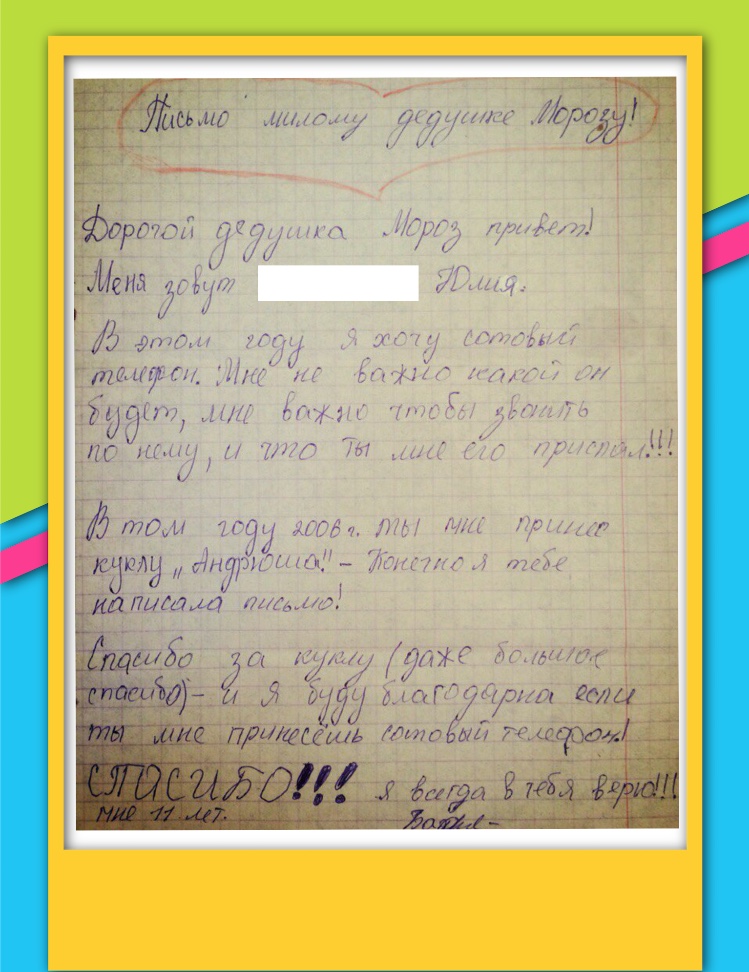 Письмо милому дедушке Морозу!
Дорогой дедушка Мороз привет!
Меня зовут Юлия.
В этом году я хочу сотовый
телефон. Мне не важно какой он
будет, мне важно чтобы звонить
по нему, и что ты мне его прислал!!!
В том году 2006 г. ты мне принес
куклу „Андрюша!" - Конечно я тебе
написала письмо!
Спасибо за куклу (даже большое
спасибо) - и я буду благодарна если
ты мне принесёшь сотовый телефон!
СПАСИБО!!! я всегда в тебя верю!!!
мне 11 лет.